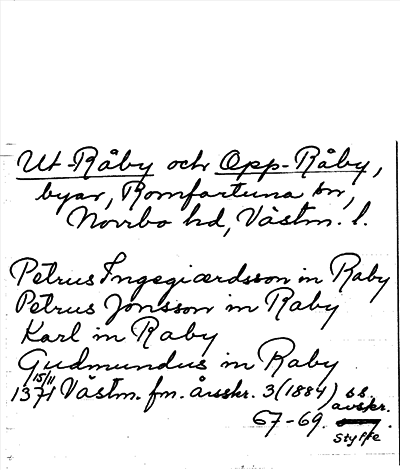 Ut-Råby och Opp-Råby,
byar, Romfartuna sn,
Norrbo hd, Västm. l.
Petrus Ingegiærdsson in Raby
Petrus Jonsson in Raby
Karl in Raby
Gudmundus in Raby
15/11
1371 Västm. fm. årsskr. 3 (1884) ss.
67-69. avskr.
Styffe